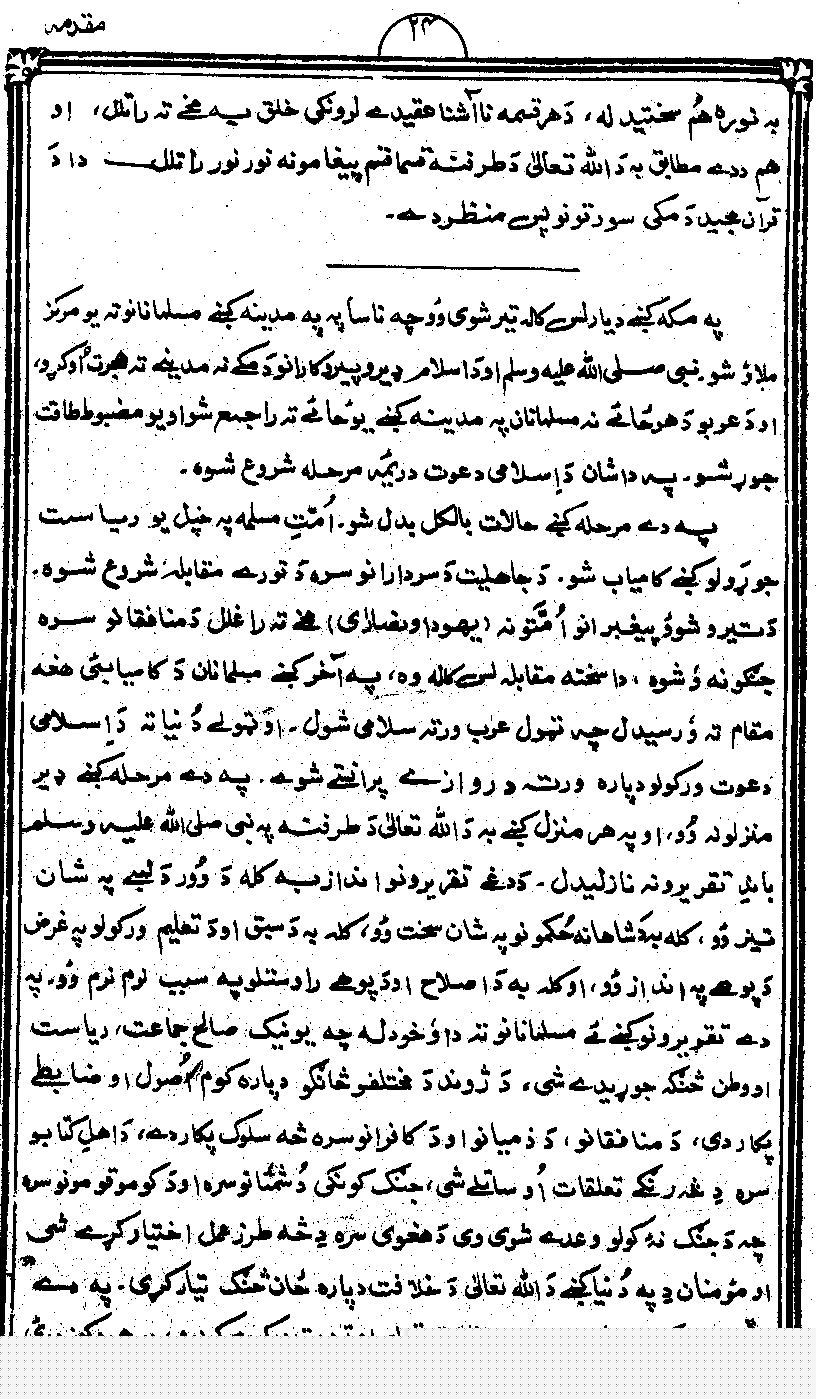 مقدمه
۲۴
به نوره هم سختیدله، دَ هر قسمه ناآشنا عقیدے لرونکی خلق به مخے ته راتلل، او
هم ددے مطابق به دَ الله تعالیٰ دَ طرفنه قسماقسم پیغامونه نور نور راتلل۔ دا دَ
قرآن مجید دَ مکی سورتونو پس منظر دے۔
په مکه کښے دیارلس کاله تیر شوی وُو چه ناسا په په مدینه کښے مسلمانانو ته یو مرکز
ملاؤ شو۔ نبی صلی الله علیه وسلم او دَ اسلام ډیرو پیروکارانو دَ مکے نه مدینے ته هجرت اوکړو،
او دَ عربو دَ هر ځائے نه مسلمانان په مدینه کښے یو ځائے ته راجمع شو او یو مضبوط طاقت
جوړ شو۔ په دا شان دَ اِسلامی دعوت دریمه مرحله شروع شوه۔
په دے مرحله کښے حالات بالکل بدل شو۔ اُمّتِ مسلمه په خپل یو ریاست
جوړولو کښے کامیاب شو۔ دَ جاهلیت دَ سردارانو سره دَ تورے مقابله شروع شوه۔
دَ تیرو شوؤ پیغمبرانو اُمّتونه (یهود او نصاریٰ) مخے ته راغلل دَ منافقانو سره
جنګونه وُ شوه، دا سخته مقابله لس کاله وه، په آخر کښے مسلمانان دَ کامیابئ هغه
مقام ته وُ رسیدل چه ټول عرب ورته سلامی شول۔ او ټولے دُنیا ته دَ اِسلامی
دعوت ورکولو دپاره ورته دروازے پرانستے شوے۔ په دے مرحله کښے ډیر
منزلونه وُو، او په هر منزل کښے به دَ الله تعالیٰ دَ طرفنه په نبی صلی الله علیه وسلم
باندِ تقریرونه نازلیدل۔ دَ دغے تقریرونو انداز به کله دَ وُور دَ لمبے په شان
تیز وُو، کله به دَ شاهانه حُکمونو په شان سخت وُو، کله به دَ سبق او دَ تعلیم ورکولو په غرض
دَ پوهے په انداز وُو، او کله به دَ اصلاح او دَ پوهے راوستلو په سبب نرم نرم وُو۔ په
دے تقریرونو کښے ئے مسلمانانو ته دا وُ خودله چه یو نیک صالح جماعت، ریاست
او وطن څنګه جوړیدے شی، دَ ژوند دَ مختلفو څانګو دپاره کوم اُصول او ضابطے
پکار دی، دَ منافقانو، دَ ذمیانو او دَ کافرانو سره څه سلوک پکار دے، دَ اهل کتابو
سره دِ څه رنګے تعلقات اُو ساتلے شی، جنګ کونکی دُشمنانو سره او دَ کومو قومونو سره
چه دَ جنګ نهٔ کولو وعدے شوی وی دَ هغوی سره دِ څه طرزِ عمل اختیار کړے شی
او مؤمنان دِ په دُنیا کښے دَ الله تعالیٰ دَ خلافت دپاره ځان څنګ تیار کړی۔ په دے